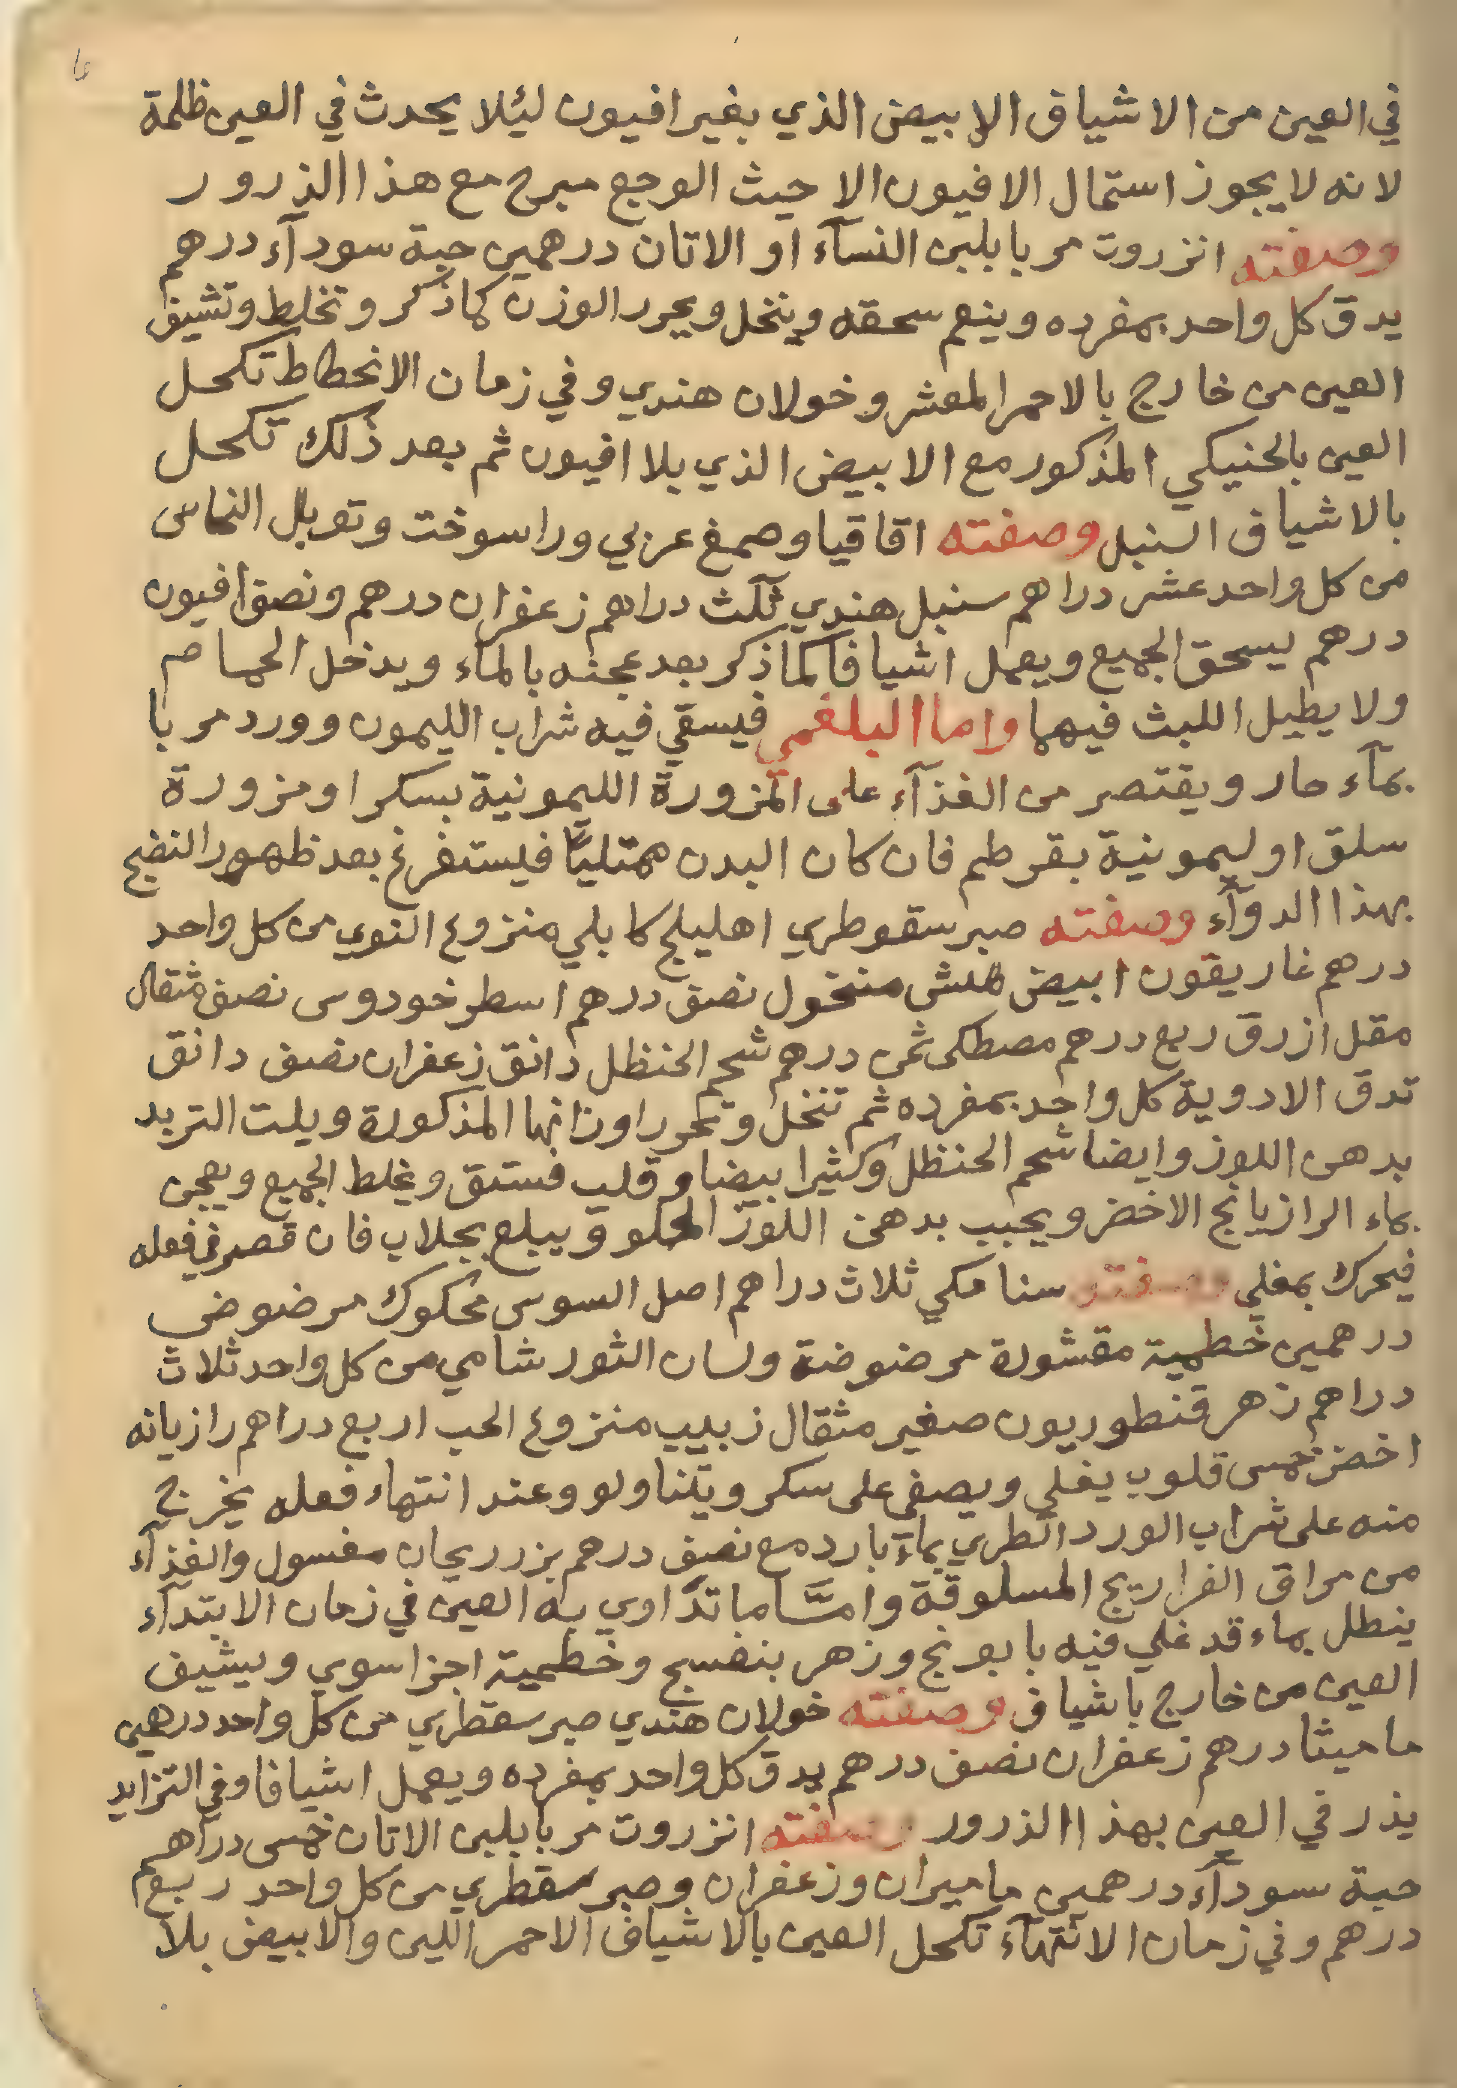 في العين من الاشياق الابيض الذي بغير افيون ليئلا يحدث في العين ظلمة
لانه لا يجوز استمال الافيون الا حيث الوجع مبرح مع هذا الذرور
وصفته انزروت مربا بلبن النسآء او الاتان درهمين حبة سودآء درهم
يدق كل واحد بمفرده وينعم سحقه وينخل ويحرر الوزن كما ذكر وتخلط وتشيف
العين من خارج بالاحمر المعشر وخولان هندي وفي زمان الانحطاط تكحل
العين بالحنيكي المذكور مع الابيض الذي بلا افيون ثم بعد ذلك تكحل
بالاشياف السنبل وصفته اقاقيا وصمغ عربي وراسوخت وتوبال النحاس
من كل واحد عشر دراهم سنبل هندي ثلث دراهم زعفران درهم ونصف افيون
درهم يسحق الجميع ويعمل اشيافا كما ذكر بعد عجنه بالماء ويدخل الحمام
ولا يطيل اللبث فيها واما البلغمي فيسقي فيه شراب الليمون وورد مربا
بمآء حار ويقتصر من الغذآء على المزورة الليمونية بسكر او مزورة
سلق او ليمونية بقرطم فان كان البدن ممتليًّا فيستفرغ بعد ظهور النضج
بهذا الدوآء وصفته صبر سقوطري اهليلج كابلي منزوع النوي من كل واحد
درهم غاريقون ابيض هش منخول نصف درهم اسطوخودوس نصف مثقال
مقل ازرق ربع درهم مصطكى ثمن درهم شحم الحنظل دانق زعفران نصف دانق
تدق الادوية كل واحد بمفرده ثم تنخل وتحرر اوزانها المذكورة ويلت التربد
بدهن اللوز وايضا شحم الحنظل وكثيرا بيضا وقلب فستق ويخلط الجميع ويعجن
بماء الرازيانج الاخضر ويحبب بدهن اللوز الحلو ويبلع بجلاب فان قصر في فعله
فيحرك بمغلي وصفته سنا مكي ثلاث دراهم اصل السوس محكوك مرضوض
درهمين خطمية مقشورة مرضوضة ولسان الثور شامي من كل واحد ثلاث
دراهم زهر قنطوريون صغير مثقال زبيب منزوع الحب اربع دراهم رازيانه
اخضر خمس قلوب يغلي ويصفى على سكر ويتناولو وعند انتهاء فعله يخرج
منه على شراب الورد الطري بمآء بارد مع نصف درهم بزر ريحان مغسول والغذآء
من مراق الفراريج المسلوقة وامَّا ما تداوي به العين في زمان الابتدآء
ينطل بماء قد غلي فيه بابونج وزهر بنفسج وخطمية اجزا سوي ويشيف
العين من خارج باشياف وصفته خولان هندي صبر سقطري من كل واحد درهين
ماميثا درهم زعفران نصف درهم يدق كل واحد بمفرده ويعمل اشيافا وفي التزايد
يذر في العين بهذا الذرور وصفته انزروت مربا بلبن الاتان خمس دراهم
حبة سودآء درهمين ماميران وزعفران وصبر سقطري من كل واحد ربع
درهم وفي زمان الانتهآء تكحل العين بالاشياف الاحمر اللين والابيض بلا